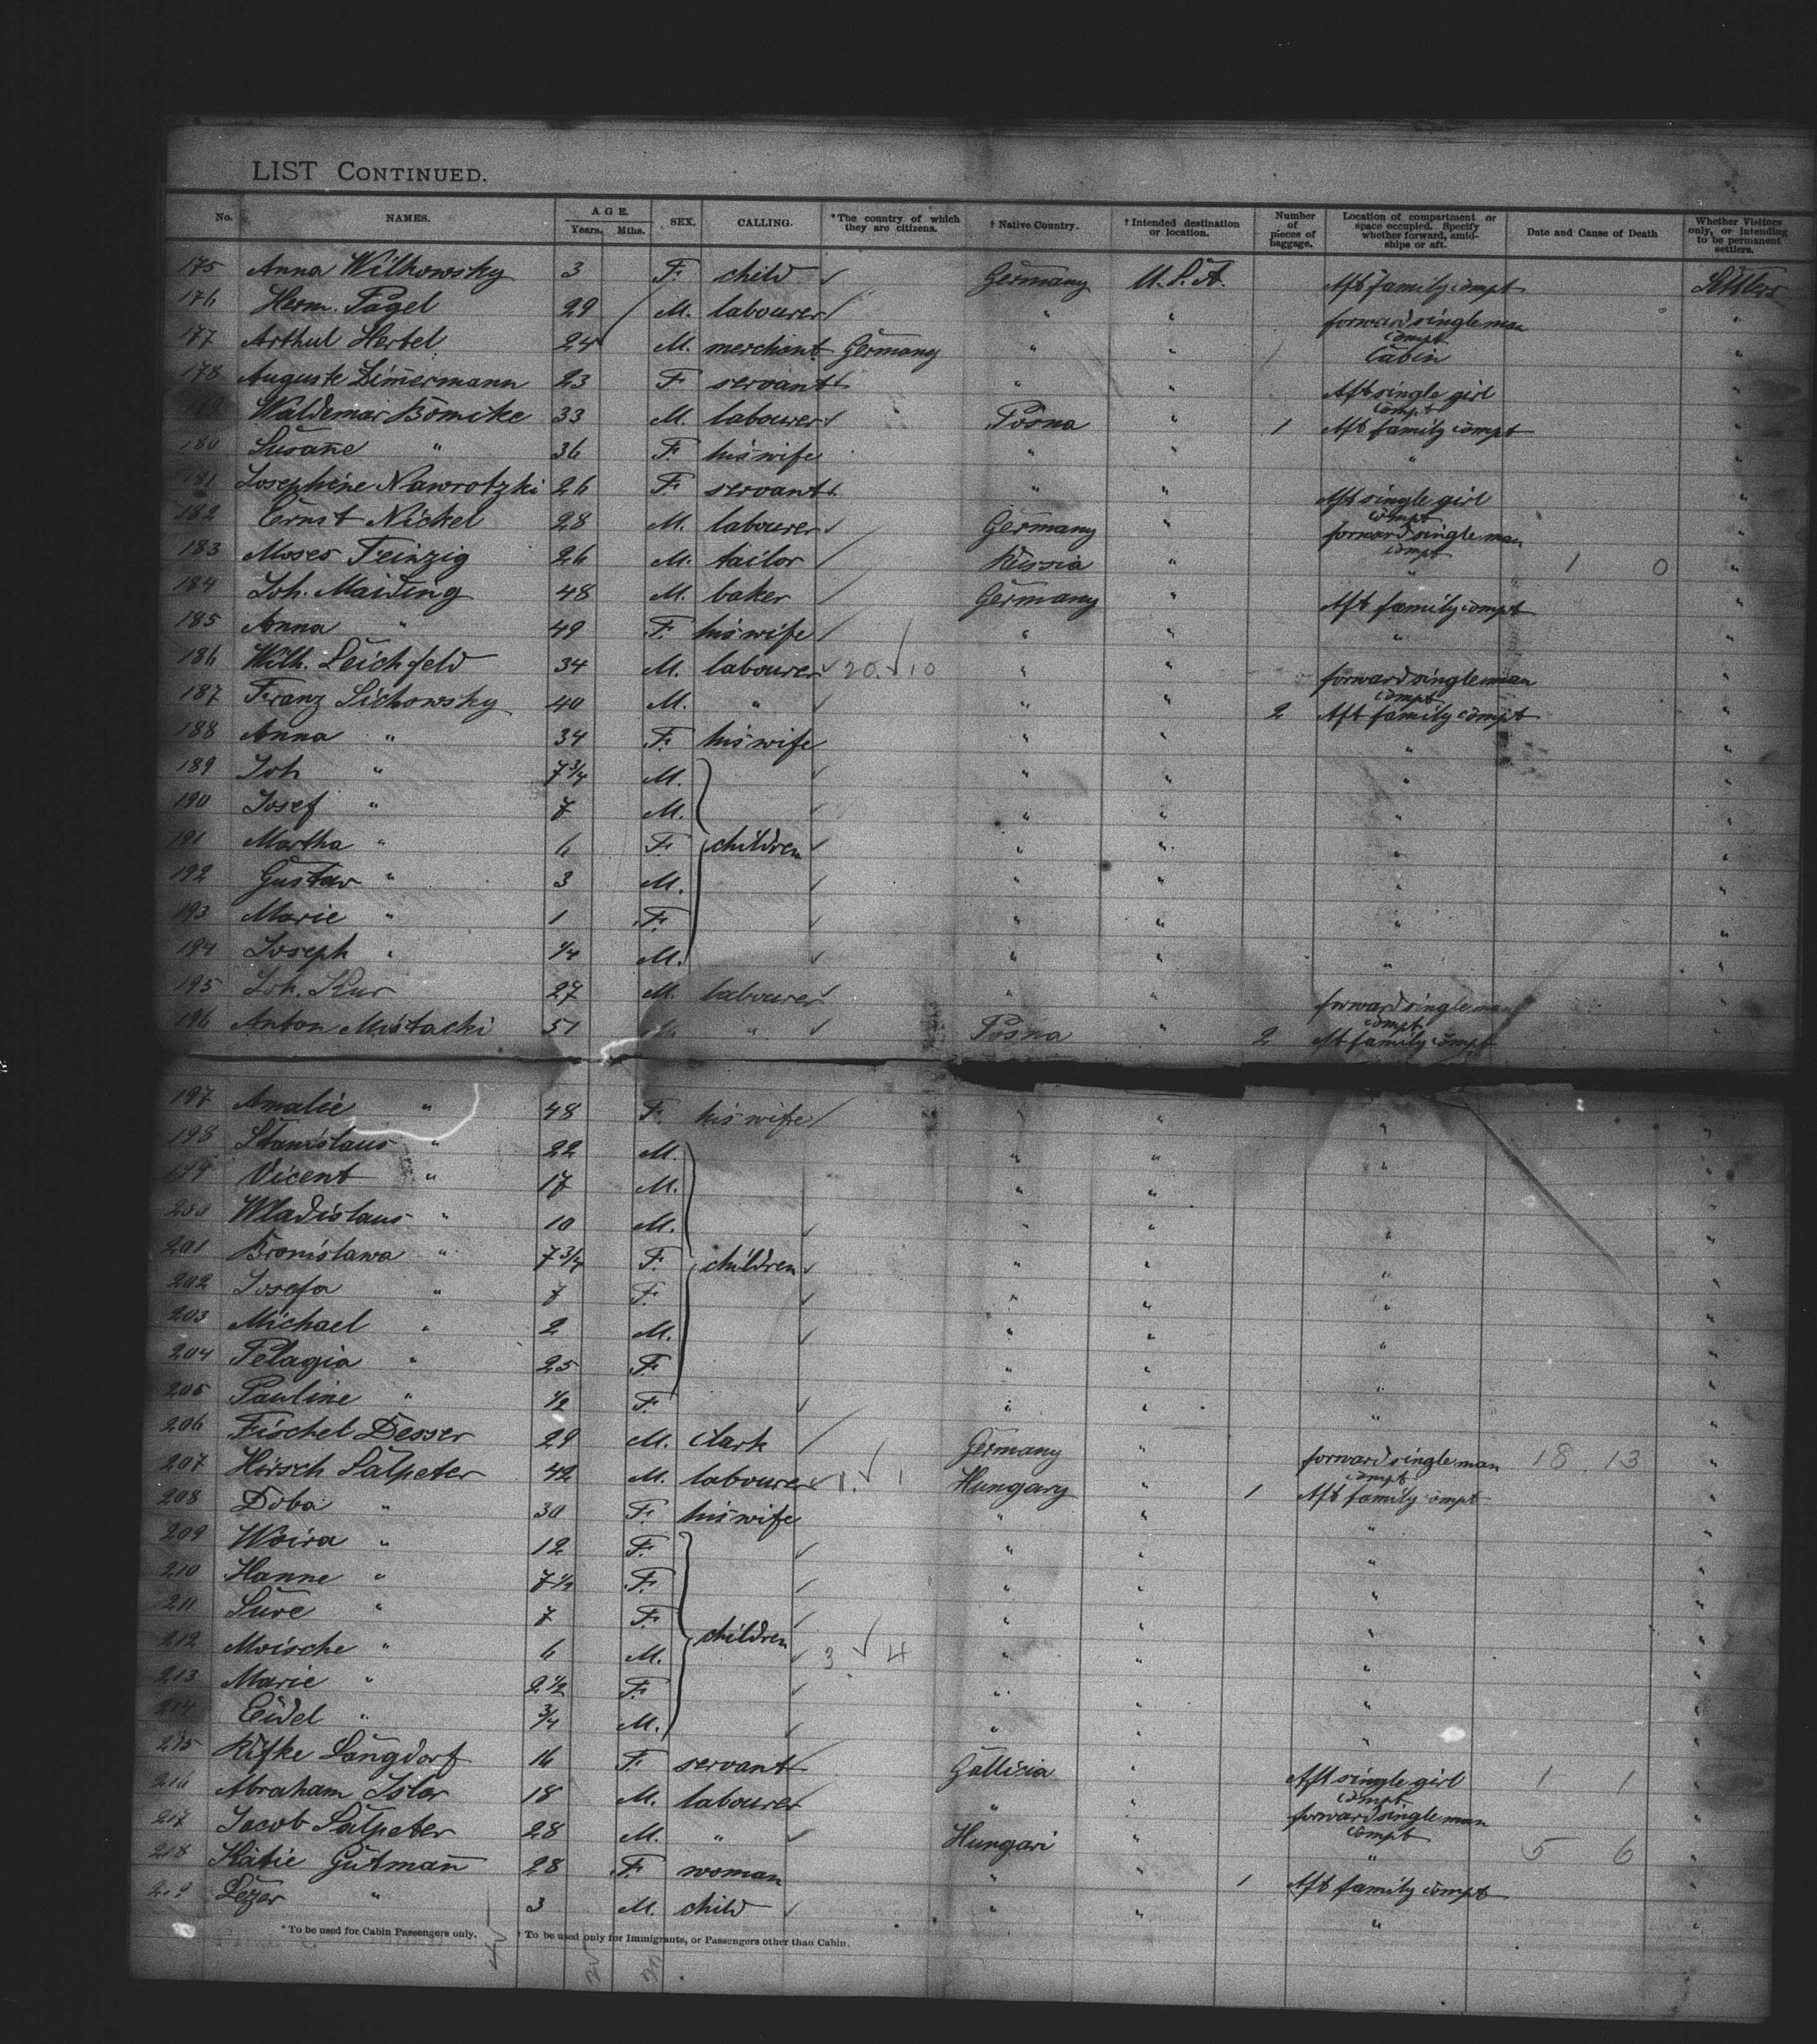 LIST CONTINUED.
No. NAMES. AGE. Years. Mths. SEX. CALLING. *The country of which they are citizens. † Native Country. † Intended destination or location. Number of pieces of baggage. Location of compartment or space occupied. Specify whether forward, amid-ships or aft. Date and Cause of Death Whether Visitors only, or intending to be permanent settlers.
175 Anna Wilkowsky 3 F. child ✓ Germany U.S.A. Aft family compt Settlers
176 Herm. Pagel 29 / M. labourer / " " forward single man compt "
177 Arthul Hertel 24 M. merchant Germany " " Cabin "
178 Auguste Zimermann 23 F servant " " Aft single girl compt "
179 Waldemar Bömcke 33 M. labourer ✓ Posna " 1 Aft family compt "
180 Susañe " 36 F. his wife " " " "
181 Josephine Nawrotzki 26 F servant " " Aft single girl compt "
182 Ernst Nickel 28 M. labourer ✓ Germany " forward single man compt "
183 Moses Feinzig 26 M. tailor / Russia " " 1 0 "
184 Joh. Maiding 48 M. baker / Germany " Aft family compt "
185 Anna " 49 F. his wife / " " " "
186 Wilh. Leichfeld 34 M. labourer ✓ 20 ✓ 10 " " forward single man compt "
187 Franz Lichowsky 40 M. " ✓ " " 2 Aft family compt "
188 Anna " 34 F. his wife " " " "
189 Joh " 7¾ M. ✓ " " " "
190 Josef " 7 M. ✓ " " " "
191 Martha " 6 F. children ✓ " " " "
192 Gustav " 3 M. ✓ " " " "
193 Marie " 1 F. ✓ " " " "
194 Joseph " ¼ M. ✓ " " " "
195 Joh. Kur 27 M. labourer " " forward single man compt "
196 Anton Mistacki 51 " ✓ Posna " 2 Aft family compt
197 Amalie " 48 F. his wife / " " " "
198 Stanislaus " 22 M. " " " "
199 Vicent " 17 M. " " "
200 Wladislaus " 10 M. ✓ " " " "
201 Bronislawa " 7¾ F. children ✓ " " " "
202 Josefa " 7 F. ✓ " " " "
203 Michael " 2 M. ✓ " " " "
204 Pelagia " 25 F " " " "
205 Pauline " ½ F. ✓ " " " "
206 Fischel Desser 29 M. clark / Germany " forward single man compt 18 13 "
207 Hirsch Salpeter 42 M. labourer 1 ✓ 1 Hungary " 1 Aft family compt "
208 Doba " 30 F. his wife " " " "
209 Woira " 12 F. ✓ " " " "
210 Hanne " 7½ F. / " " " "
211 Sure " 7 F. ✓ " " " "
212 Moische " 6 M. children ✓ 3 ✓ 4 " " " "
213 Marie " 2½ F. ✓ " " " "
214 Eidel " ¾ M. ✓ " " " "
215 Rifke Langdorf 16 F servant Gallicia " Aft single girl compt 1 1 "
216 Abraham Islar 18 M. labourer " " forward single man compt "
217 Jacob Salpeter 28 M. " ✓ Hungari " " 5 6 "
218 Katie Gutmañ 28 F woman " " 1 Aft family compt "
219 Lezer " 3 M. child ✓ " " " "
* To be used for Cabin Passengers only. † To be used only for Immigrants, or Passengers other than Cabin.